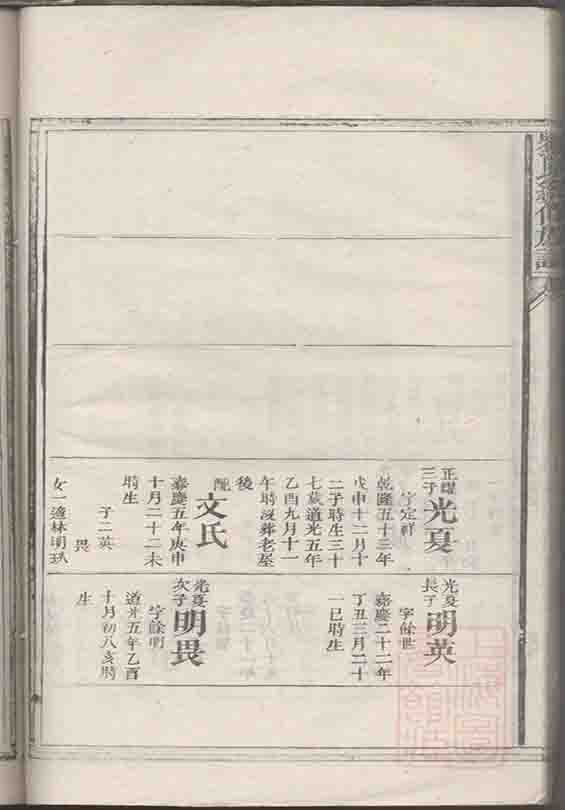 正曜
三子
光夏
字定祥
乾隆五十三年
戊申十二月十
二子時生三十
七歲道光五年
乙酉九月十一
午時沒葬老屋
後
配
文氏
嘉慶五年庚申
十月二十二未
時生
子二英
畏
女一適林明玖
光夏
長子
明英
字餘世
嘉慶二十二年
丁丑三月二十
一巳時生
光夏
次子
明畏
字餘明
道光五年乙酉
十月初八亥時
生